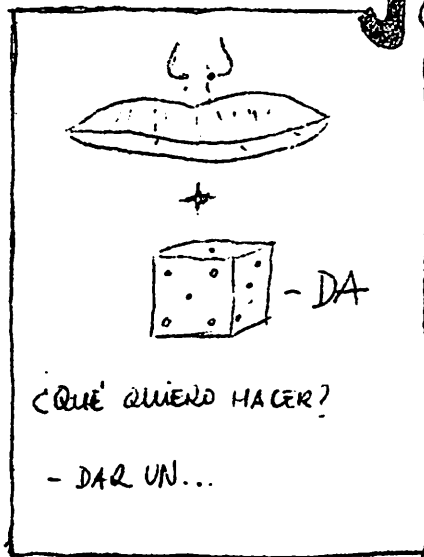 +
- DA
¿QUÉ QUIERO HACER?
- DAR UN...